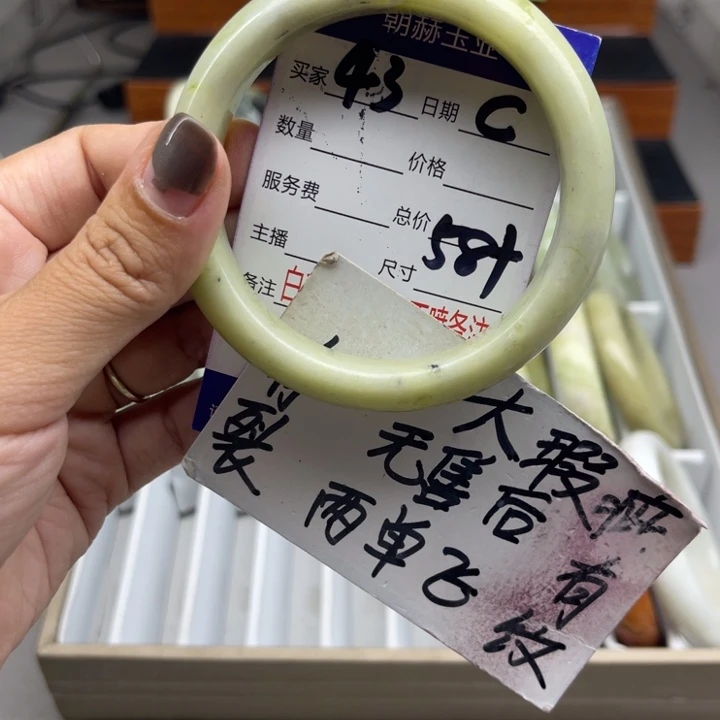 朝赫玉业
买家 43 日期 C
数量 价格
服务费 总价
主播 尺寸 58+
备注
大瑕疵
无售后 有纹
裂 两单飞